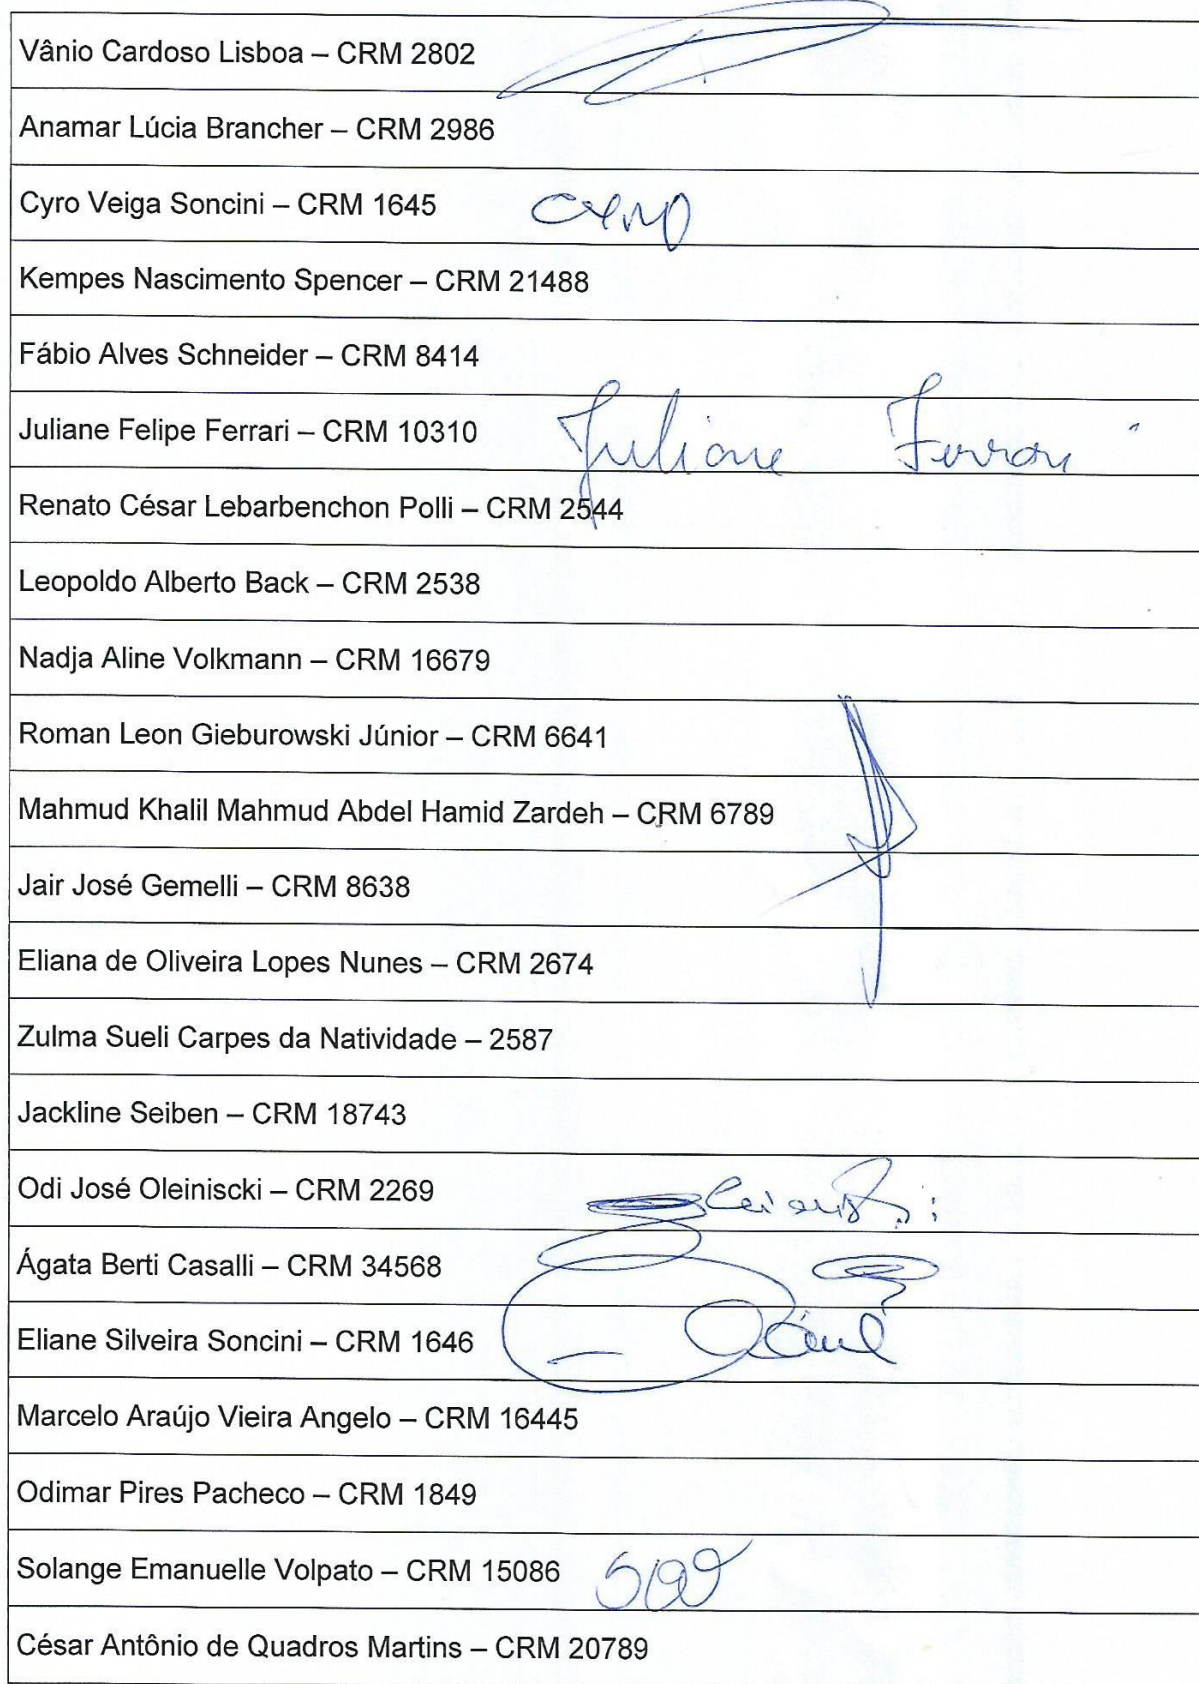 Vânio Cardoso Lisboa – CRM 2802
Anamar Lúcia Brancher – CRM 2986
Cyro Veiga Soncini – CRM 1645 Cyro
Kempes Nascimento Spencer – CRM 21488
Fábio Alves Schneider – CRM 8414
Juliane Felipe Ferrari – CRM 10310 Juliane Ferrari
Renato César Lebarbenchon Polli – CRM 2544
Leopoldo Alberto Back – CRM 2538
Nadja Aline Volkmann – CRM 16679
Roman Leon Gieburowski Júnior – CRM 6641
Mahmud Khalil Mahmud Abdel Hamid Zardeh – CRM 6789
Jair José Gemelli – CRM 8638
Eliana de Oliveira Lopes Nunes – CRM 2674
Zulma Sueli Carpes da Natividade – 2587
Jackline Seiben – CRM 18743
Odi José Oleiniscki – CRM 2269
Ágata Berti Casalli – CRM 34568
Eliane Silveira Soncini – CRM 1646
Marcelo Araújo Vieira Angelo – CRM 16445
Odimar Pires Pacheco – CRM 1849
Solange Emanuelle Volpato – CRM 15086
César Antônio de Quadros Martins – CRM 20789